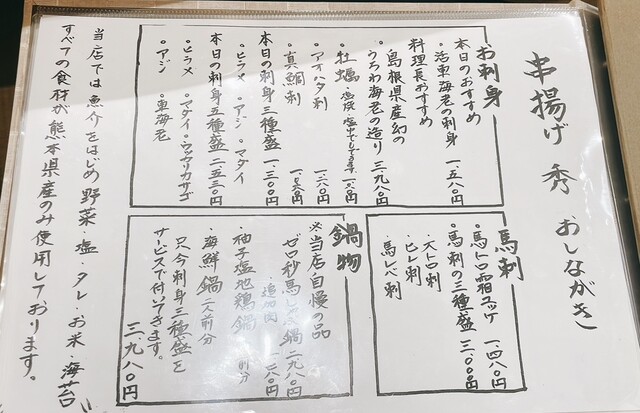 串揚げ 秀 おしながき
お刺身
本日のおすすめ
・活車海老の刺身 一、五八〇円
料理長おすすめ
島根県産幻の
うちわ海老の造り 三、九八〇円
・牡蠣
・アオハタ刺 一、二八〇円
・真鯛刺
本日の刺身三種盛 一、三〇〇円
・ヒラメ ・アジ ・マダイ
本日の刺身五種盛 二、五三〇円
・ヒラメ ・マダイ ・ウッカリカサゴ
・アジ ・車海老
馬刺
・馬トロ霜ユッケ 一、四八〇円
・馬刺の三種盛 三、〇〇〇円
・大トロ刺
・ヒレ刺
・馬レバ刺
鍋物
※当店自慢の品
ゼロ秒馬しゃぶ鍋 二、九八〇円
・追加肉 一、二八〇円
・柚子塩地鶏鍋 前分
・海鮮鍋 二人前分
只今刺身三種盛を
サービスで付いてきます。
三、九八〇円
当店では魚介をはじめ野菜・塩・タレ・お米・海苔
すべての食材が熊本県産のみ使用しております。